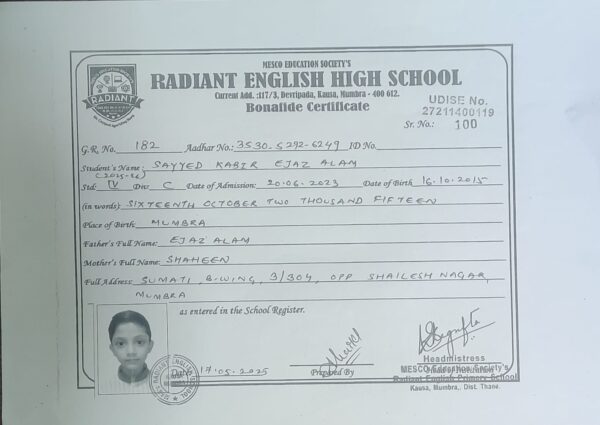 MESCO EDUCATION SOCIETY'S
RADIANT ENGLISH HIGH SCHOOL
Current Add. :117/3, Devripada, Kausa, Mumbra - 400 612.
Bonafide Certificate
UDISE No.
27211400119
Sr. No.: 100
G.R. No. 182 Aadhar No.: 3530-5292-6249 ID No.
Student's Name: SAYYED KABIR EJAZ ALAM
(2025-26)
Std: IV Div: C Date of Admission: 20.06.2023 Date of Birth 16.10.2015
(in words): SIXTEENTH OCTOBER TWO THOUSAND FIFTEEN
Place of Birth: MUMBRA
Father's Full Name: EJAZ ALAM
Mother's Full Name: SHAHEEN
Full Address: SUMATI, B-WING, 3/304, OPP SHAILESH NAGAR,
MUMBRA
as entered in the School Register.
RADIANT
Date 17.05.2025
Prepared By
Headmistress
MESCO Education Society's
Radiant English Primary School
Kausa, Mumbra, Dist. Thane.